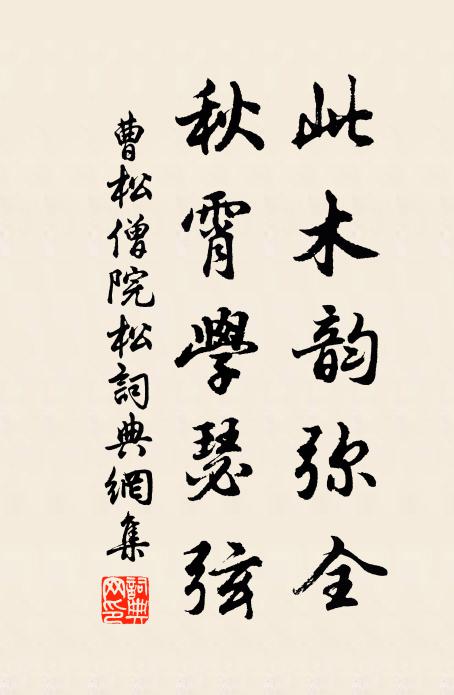 此木韵弥全
秋霄學瑟弦
曹松僧院松詞典網集
詞典网印